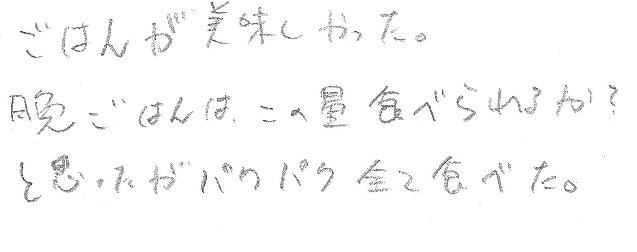 ごはんが美味しかった。
晩ごはんは、この量食べられるか?
と思ったがパクパク全て食べた。